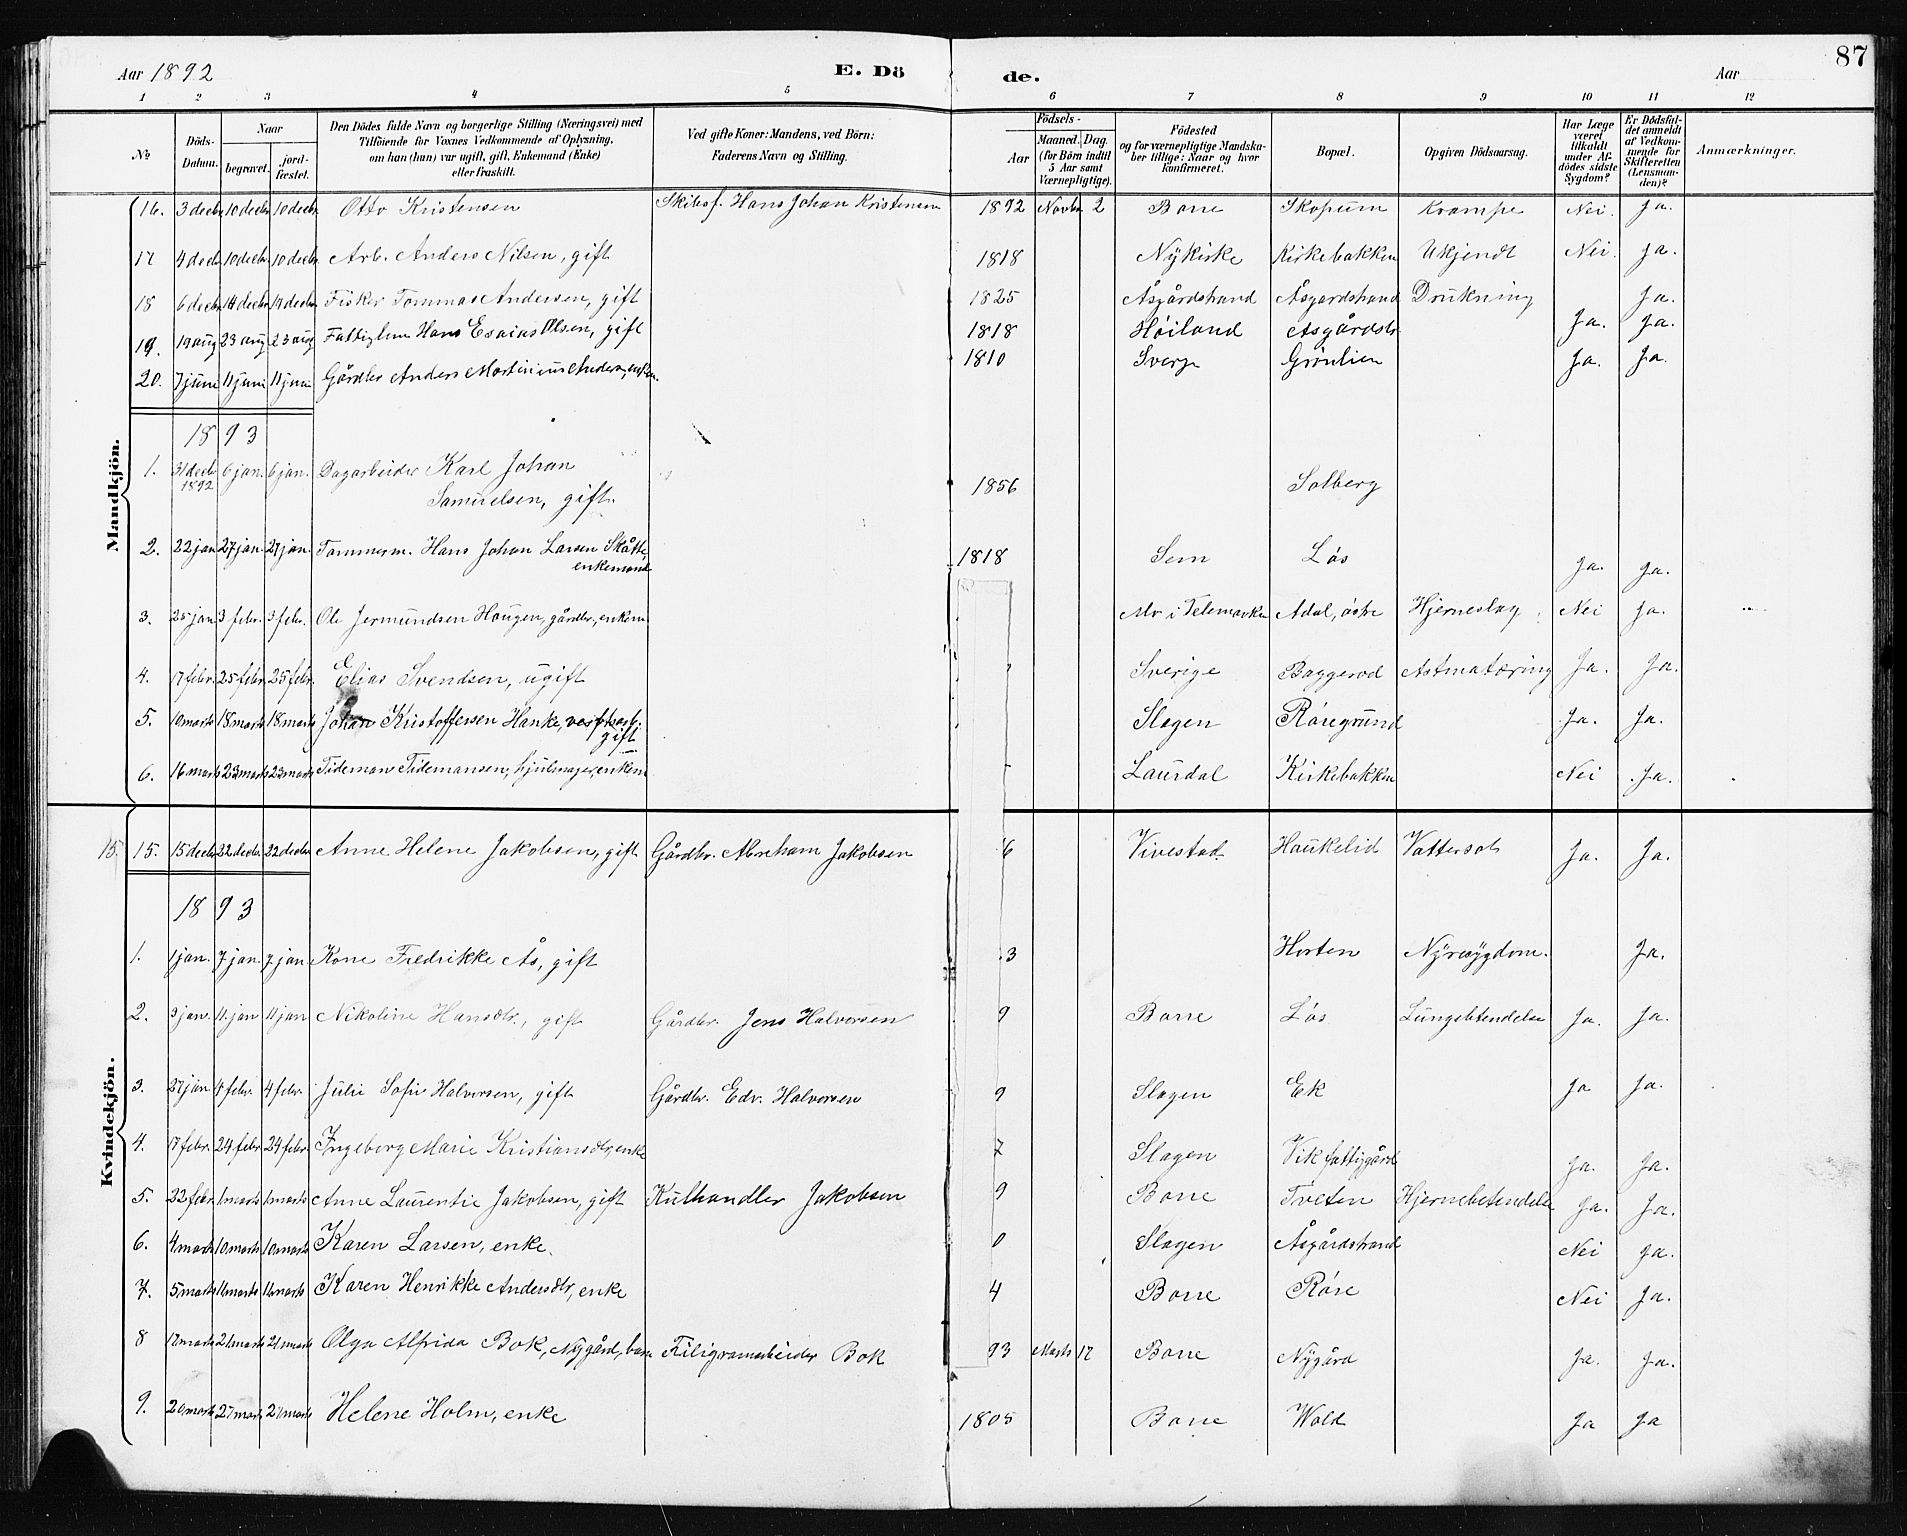 Aar 1892 E. Dö de. Aar 87
1 2 3 4 5 6 7 8 9 10 11 12
No Döds-Datum. Naar begravet. jordfæstet. Den Dödes fulde Navn og borgerlige Stilling (Næringsvei) med Tilföiende for Voxnes Vedkommende af Oplysning, om han (hun) var ugift, gift, Enkemand (Enke) eller fraskilt. Ved gifte Koner: Mandens, ved Börn: Faderens Navn og Stilling. Födsels- Aar Maaned. Dag. (for Börn indtil 5 Aar samt Værnepligtige). Födested og for værnepligtige Mandskaber tillige: Naar og hvor konfirmeret. Bopæl. Opgiven Dödsaarsag. Har Læge været tilkaldt under Afdödes sidste Sygdom? Er Dödsfaldet anmeldt af Vedkommende for Skifteretten (Lensmanden)? Anmærkninger.
Mandkjön.
16. 3 decbr 10 decbr 10 decbr Otto Kristensen Skibsf. Hans Johan Kristensen 1892 Novbr 2 Borre Skopum Krampe Nei. Ja.
17 4 decbr 10 decbr 10 decbr Arb. Anders Nilsen, gift 1818 Nykirke Kirkebakken Ukjendt Nei. Ja.
18 6 decbr 14 decbr 14 decbr Fisker Tommas Andersen, gift 1825 Åsgårdstrand Åsgardstrand Drukning Ja.
19. 19 aug 23 aug 23 aug Fattiglem Hans Esaias Olsen, gift 1818 Höiland Åsgårdstr. Ja. Ja.
20. 7 juni 11 juni 11 juni Gårdbr Anders Martinius Anders., enkem. 1810 Sverge Grönlien Ja. Ja.
1893
1. 31 decbr 1892 6 jan. 6 jan. Dagarbeider Karl Johan
Samuelsen, gift. 1856 Solberg
2. 22 jan 27 jan. 27 jan. Tømmerm. Hans Johan Larsen Skåtte,
enkemand 1818 Sem Lös Ja. Ja.
3. 25 jan 3 febr. 3 febr. Ole Jermundsen Haugen, gårdbr., enkem. Mo i Telemarken Adal, östre Hjerneslag Nei Ja.
4. 17 febr. 25 febr. 25 febr. Elias Svendsen, ugift Sverige Baggerød Astmatæring Ja. Ja.
5. 10 marts 18 marts 18 marts Johan Kristoffersen Hanke,
gift Slagen Röregrund Ja. Ja.
6. 16 marts 23 marts 23 marts Tideman Tidemansen, hjulmager, enkem Laurdal Kirkebakken Nei Ja.
Kvindekjön.
15. 15. 15 decbr 22 decbr 22 decbr Anne Helene Jakobsen, gift Gårdbr. Abraham Jakobsen 6 Vivestad Haukelid Vattersot Ja. Ja.
1893
1. 1 jan. 7 jan. 7 jan Kone Fredrikke Ås, gift 3 Horten Nyresygdom. Ja.
2. 3 jan. 11. jan 11 jan Nikoline Hansdtr., gift Gårdbr. Jens Halvorsen 9 Borre Lös Lungebetendelse Ja. Ja.
3. 27 jan 4 febr. 4 febr. Julie Sofie Halvorsen, gift Gårdbr. Edv. Halvorsen 9 Slagen Ek Ja Ja.
4. 17 febr. 24 febr 24 febr Ingeborg Marie Kristiansdtr, enke 7 Slagen Vik fattiggård Ja. Ja.
5. 22 febr. 1 marts 1 marts Anne Laurentie Jakobsen, gift Kulhandler Jakobsen 9 Borre Tveten Hjernebetendelse Ja. Ja.
6. 4 marts 10 marts 10 marts Karen Larsen, enke. 0 Slagen Åsgårdstrand Nei Ja.
7. 5 marts 11 marts 11 marts Karen Henrikke Andersdtr, enke 4 Borre Röre Nei Ja.
8 17 marts 21 marts 21 marts Olga Alfrida Bok, Nygård, barn Filigramarbeider Bok 93 Marts 17 Borre Nygård Ja. Ja.
9. 20 marts 27 marts 27 marts Helene Holm, enke 1805 Borre Wold Ja Ja